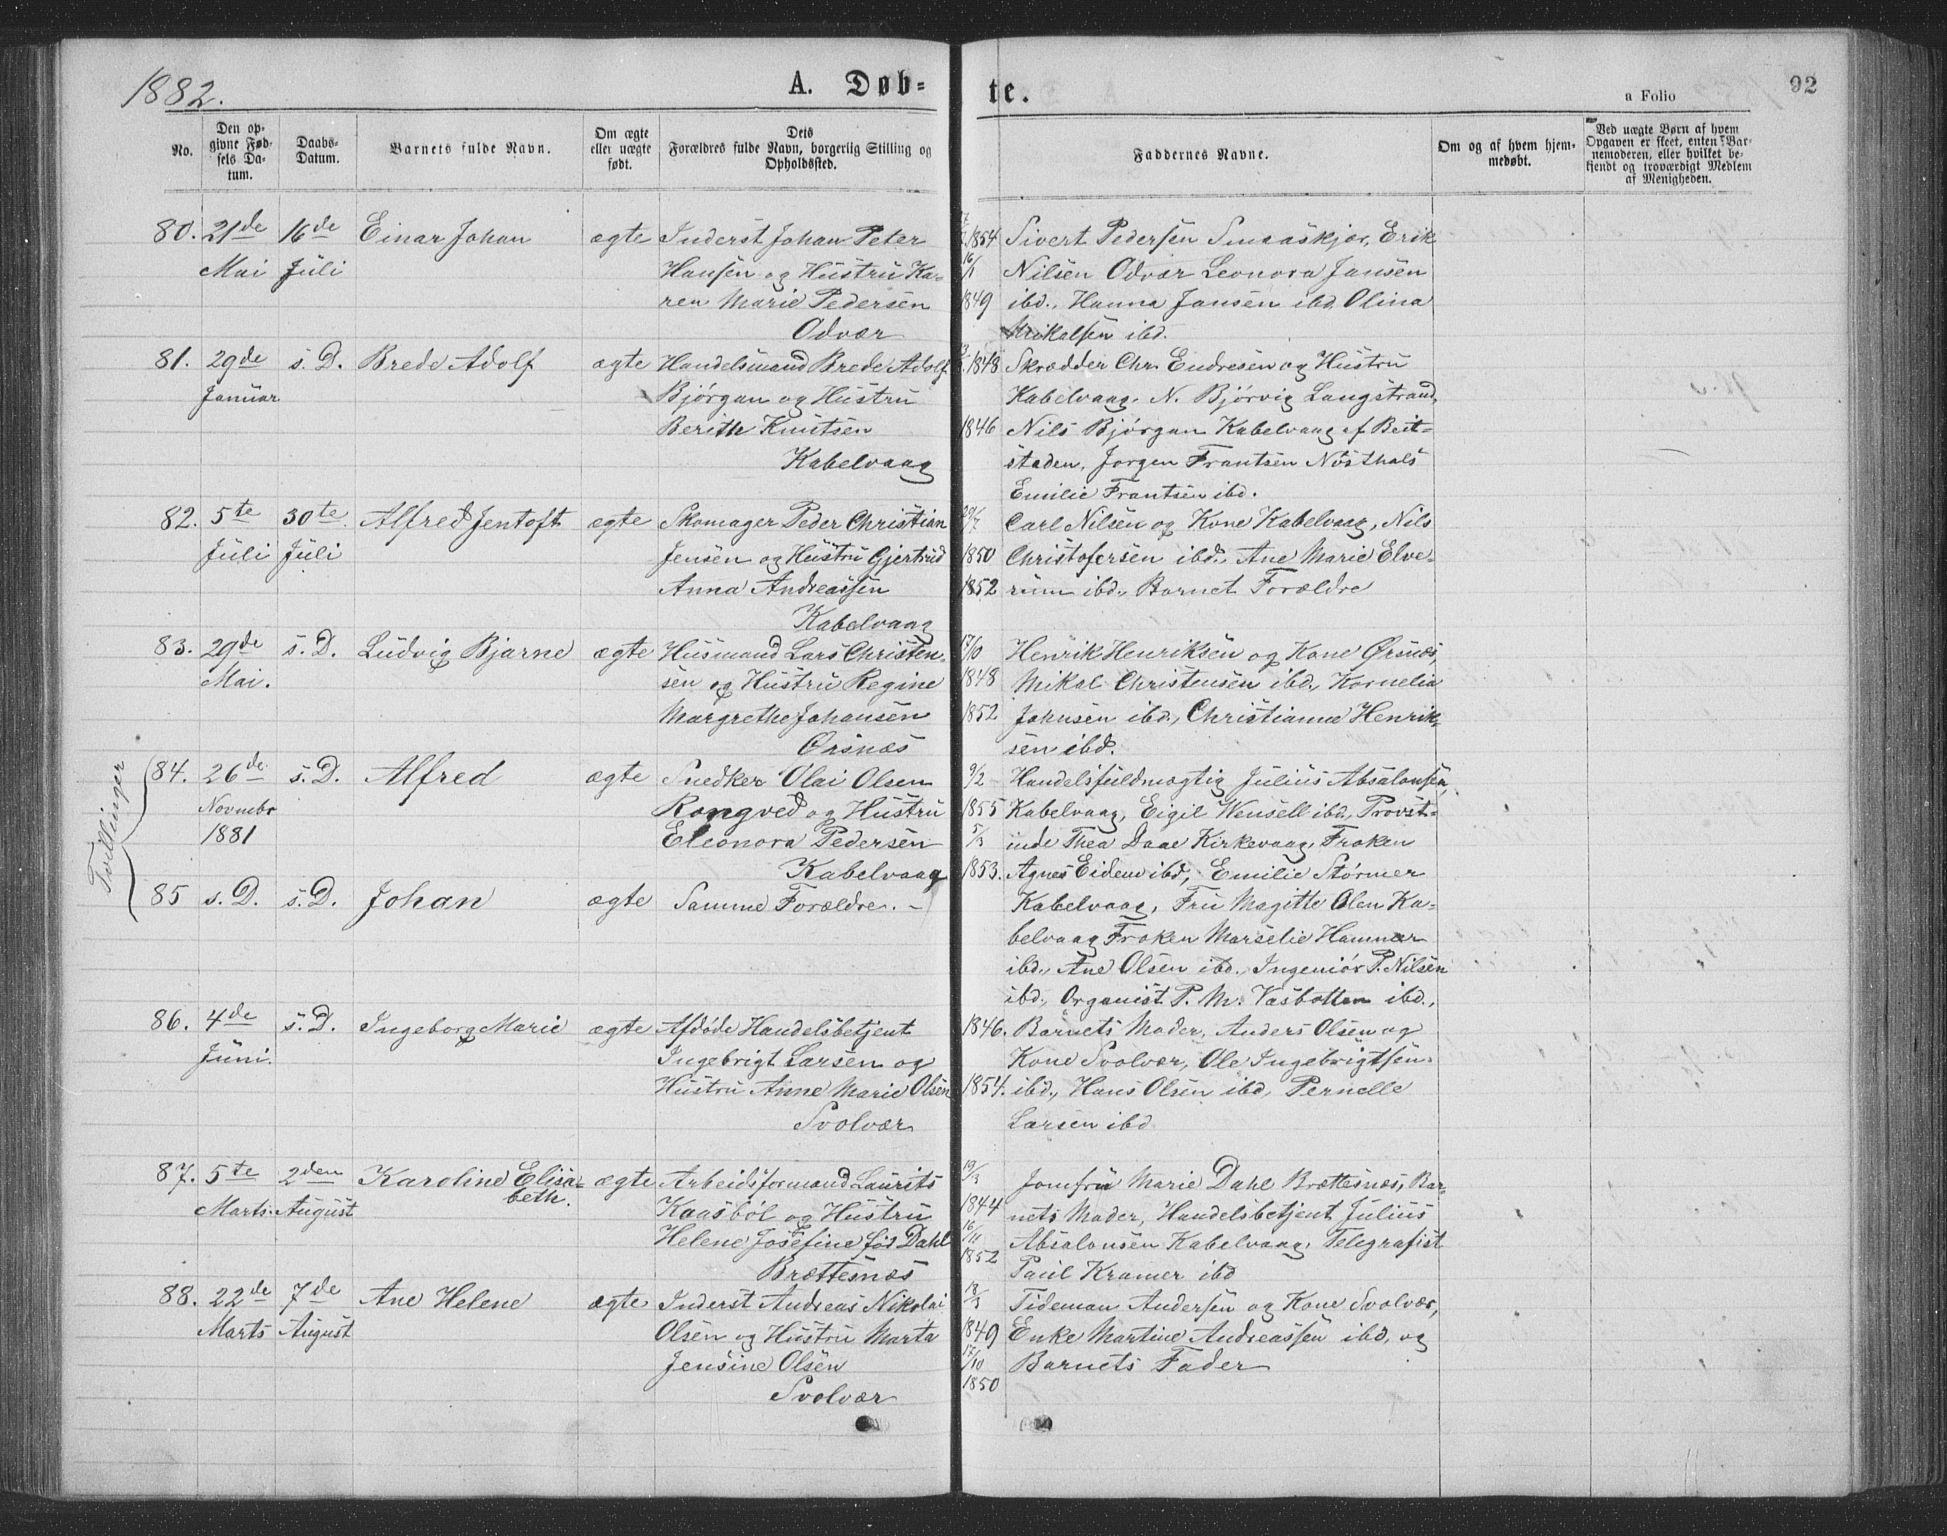 1882.
A. Døb-
te.
92
a Folio
No.
Den op-
givne Fød-
sels Da-
tum.
Daabs-
Datum.
Barnets fulde Navn.
Om ægte
eller uægte
født.
Dets
Forældres fulde Navn, borgerlig Stilling og
Opholdssted.
Faddernes Navne.
Om og af hvem hjem-
medøbt.
Ved uægte Børn af hvem
Opgaven er skeet, enten Bar-
nemoderen, eller hvilket be-
kjendt og troværdigt Medlem
af Menigheden.
80. 21de 16de Einar Johan ægte Inderst Johan Peter
Mai Juli Hansen og Hustru Ka-
ren Marie Pedersen
Odvær
1854 Sivert Pedersen Smaaskjær, Erik
Nilsen Odvær Leonora Jansen
1849 ibd., Hanna Jansen ibd, Olina
Mikalsen ibd.
81. 29de s. D. Brede Adolf ægte Handelsmand Brede Adolf
Januar Bjørgan og Hustru
Berith Knutsen
Kabelvaag
1848 Skrædder Chr. Endresen og Hustru
Kabelvaag, N. Bjørvig Langstrand,
1846 Nils Bjørgan Kabelvaag af Beit-
staden, Jørgen Frantsen Nøsthals
Emilie Frantsen ibd.
82. 5te 30te Alfred Jentoft ægte Skomager Peder Christian
Juli Juli Jensen og Hustru Gjertrud
Anna Andreassen
Kabelvaag
29/7 Carl Nilsen og Kone Kabelvaag, Nils
1850 Christofersen ibd., Ane Marie Elve-
1852 rum ibd., Barnet Forældre
83. 29de s. D. Ludvig Bjarne ægte Husmand Lars Christen-
Mai. sen og Hustru Regine
Margrethe Johansen
Ørsnæs
17/0 Henrik Henriksen og Kone Ørsnæs,
1848 Mikal Christensen ibd., Kornelia
1852 Johnsen ibd., Christianna Henrik-
sen ibd.
Tvillinger
84. 26de s. D. Alfred ægte Snedker Olai Olsen
Novmbr Rongved og Hustru
1881 Eleonora Pedersen
Kabelvaag
9/2 Handelsfuldmægtig Julius Absalonsen,
1855 Kabelvaag, Eigil Wensell ibd, Provst-
5/3 inde Thea Daae Kirkevaag, Frøken
1853. Agnes Eidem ibd, Emilie Størmer
85 s. D. s. D. Johan ægte Samme Forældre. –
Kabelvaag, Fru Magitte Olen Ka-
belvaag Frøken Marselie Hammer
ibd., Ane Olsen ibd., Ingeniør P. Nilsen
ibd., Organist P. M. Vasbotten ibd.,
86. 4de s. D. Ingeborg Marie ægte Afdøde Handelsbetjent
Juni. Ingebrigt Larsen og
Hustru Anne Marie Olsen
Svolvær
1846. Barnets Moder, Anders Olsen og
Kone Svolvær, Ole Ingebrigtsen
1854. ibd., Hans Olsen ibd, Pernelle
Larsen ibd
87. 5te 2den Karoline Elisa- ægte Arbeidsformand Laurits
beth.
Marts. August Kaasbøl og Hustru
Helene Josefine fød Dahl
Brættesnæs
19/3 Jomfru Marie Dahl Brættesnæs, Bar-
1844 nets Moder, Handelsbetjent Julius
16/11 Absalonsen Kabelvaag, Telegrafist
1852 Paul Kramer ibd
88. 22de 7de Ane Helene ægte Inderst Andreas Nikolai
Marts August Olsen og Hustru Marta
Jensine Olsen
Svolvær
18/3 Tideman Andersen og Kone Svolvær,
1849 Enke Martine Andreassen ibd, og
17/10 Barnets Fader
1850